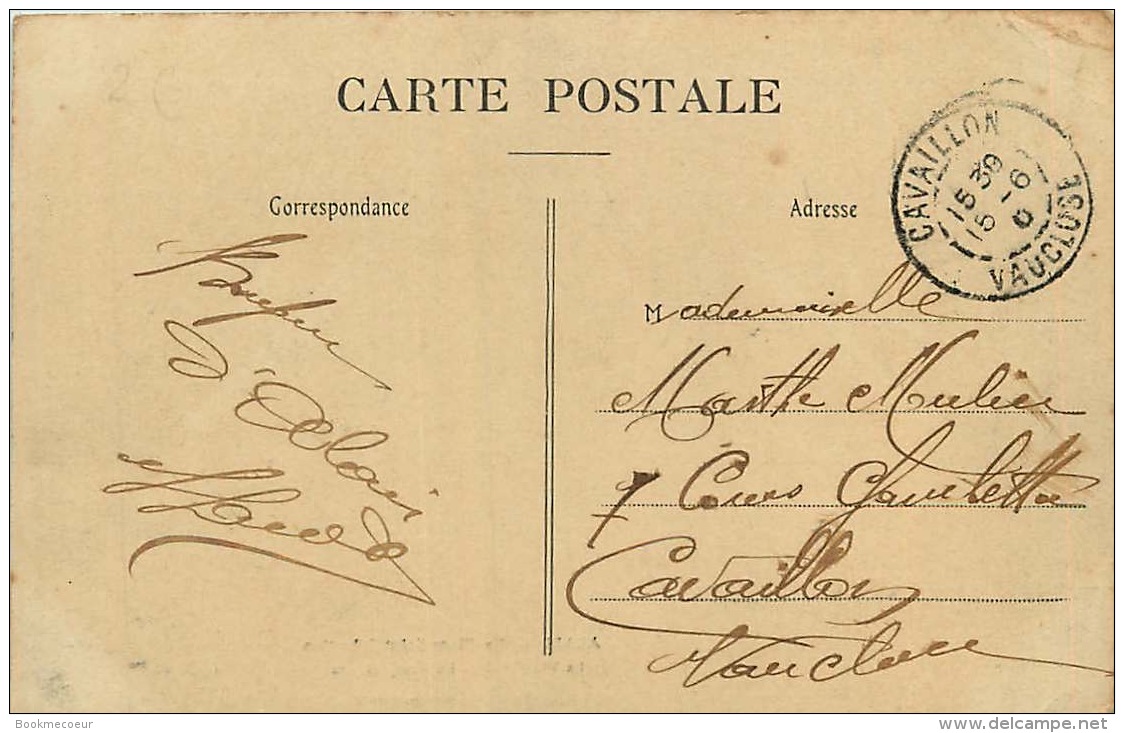 CARTE POSTALE
Correspondance
Adresse
CAVAILLON
15 39
15 -6
6
VAUCLUSE
Mademoiselle
Marthe
7 Cours Gambetta
Cavaillon
Vaucluse
Bookmecoeur
www.delcampe.net